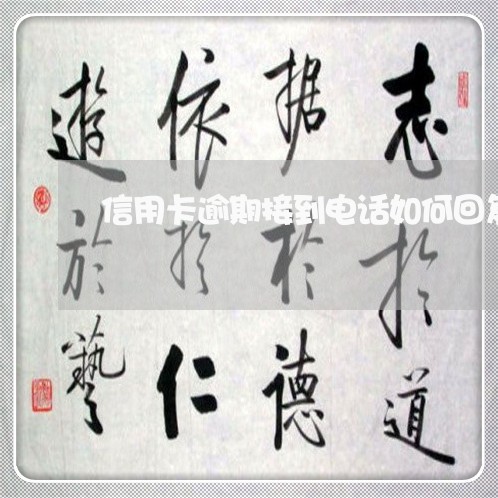 志於道
据於德
依於仁
遊於藝
信用卡逾期接到电话如何回